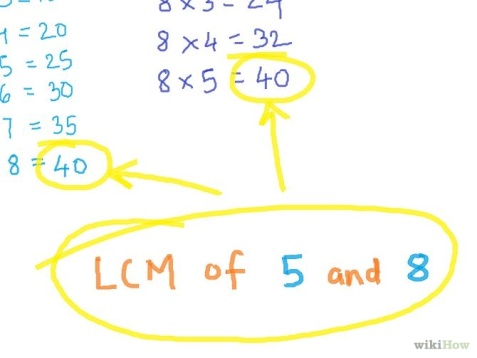 = 20
5 = 25
6 = 30
7 = 35
8 = 40
8 × 3 = 24
8 × 4 = 32
8 × 5 = 40
LCM of 5 and 8
wikiHow